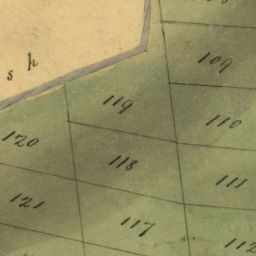 109
s h
119
110
120
118
111
121
117
112